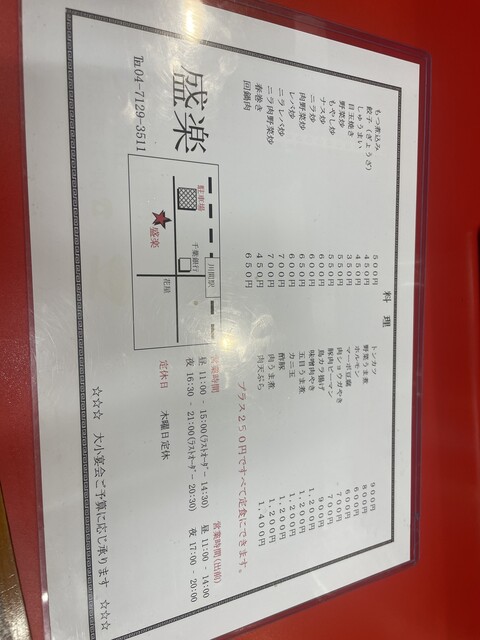 料 理
もつ煮込み 500円
餃子(ぎょうざ) 450円
しゅうまい 450円
目玉焼き 350円
野菜炒 550円
もやし炒 550円
ナス炒 600円
ニラ炒 600円
肉野菜炒 650円
レバ炒 600円
ニラレバ炒 700円
ニラ肉野菜炒 700円
春巻き 450円
回鍋肉 650円
トンカツ 900円
野菜うま煮 800円
ホルモン 600円
マーボ豆腐 600円
肉ショウガやき 700円
豚肉ピーマン 700円
鳥カラ揚げ 900円
味噌肉やき 1,200円
五目うま煮 1,200円
カニ玉 1,200円
酢豚 1,200円
肉うま煮 1,200円
肉天ぷら 1,400円
プラス250円ですべて定食にできます。
盛楽
℡04-7129-3511
駐車場
川間駅
千葉銀行
盛楽
花屋
営業時間
昼 11:00 - 15:00(ラストオーダー 14:30)
夜 16:30 - 21:00(ラストオーダー 20:30)
営業時間(出前)
昼 11:00 - 14:00
夜 17:00 - 20:00
定休日 木曜日定休
☆☆☆ 大小宴会ご予算に応じ承ります ☆☆☆